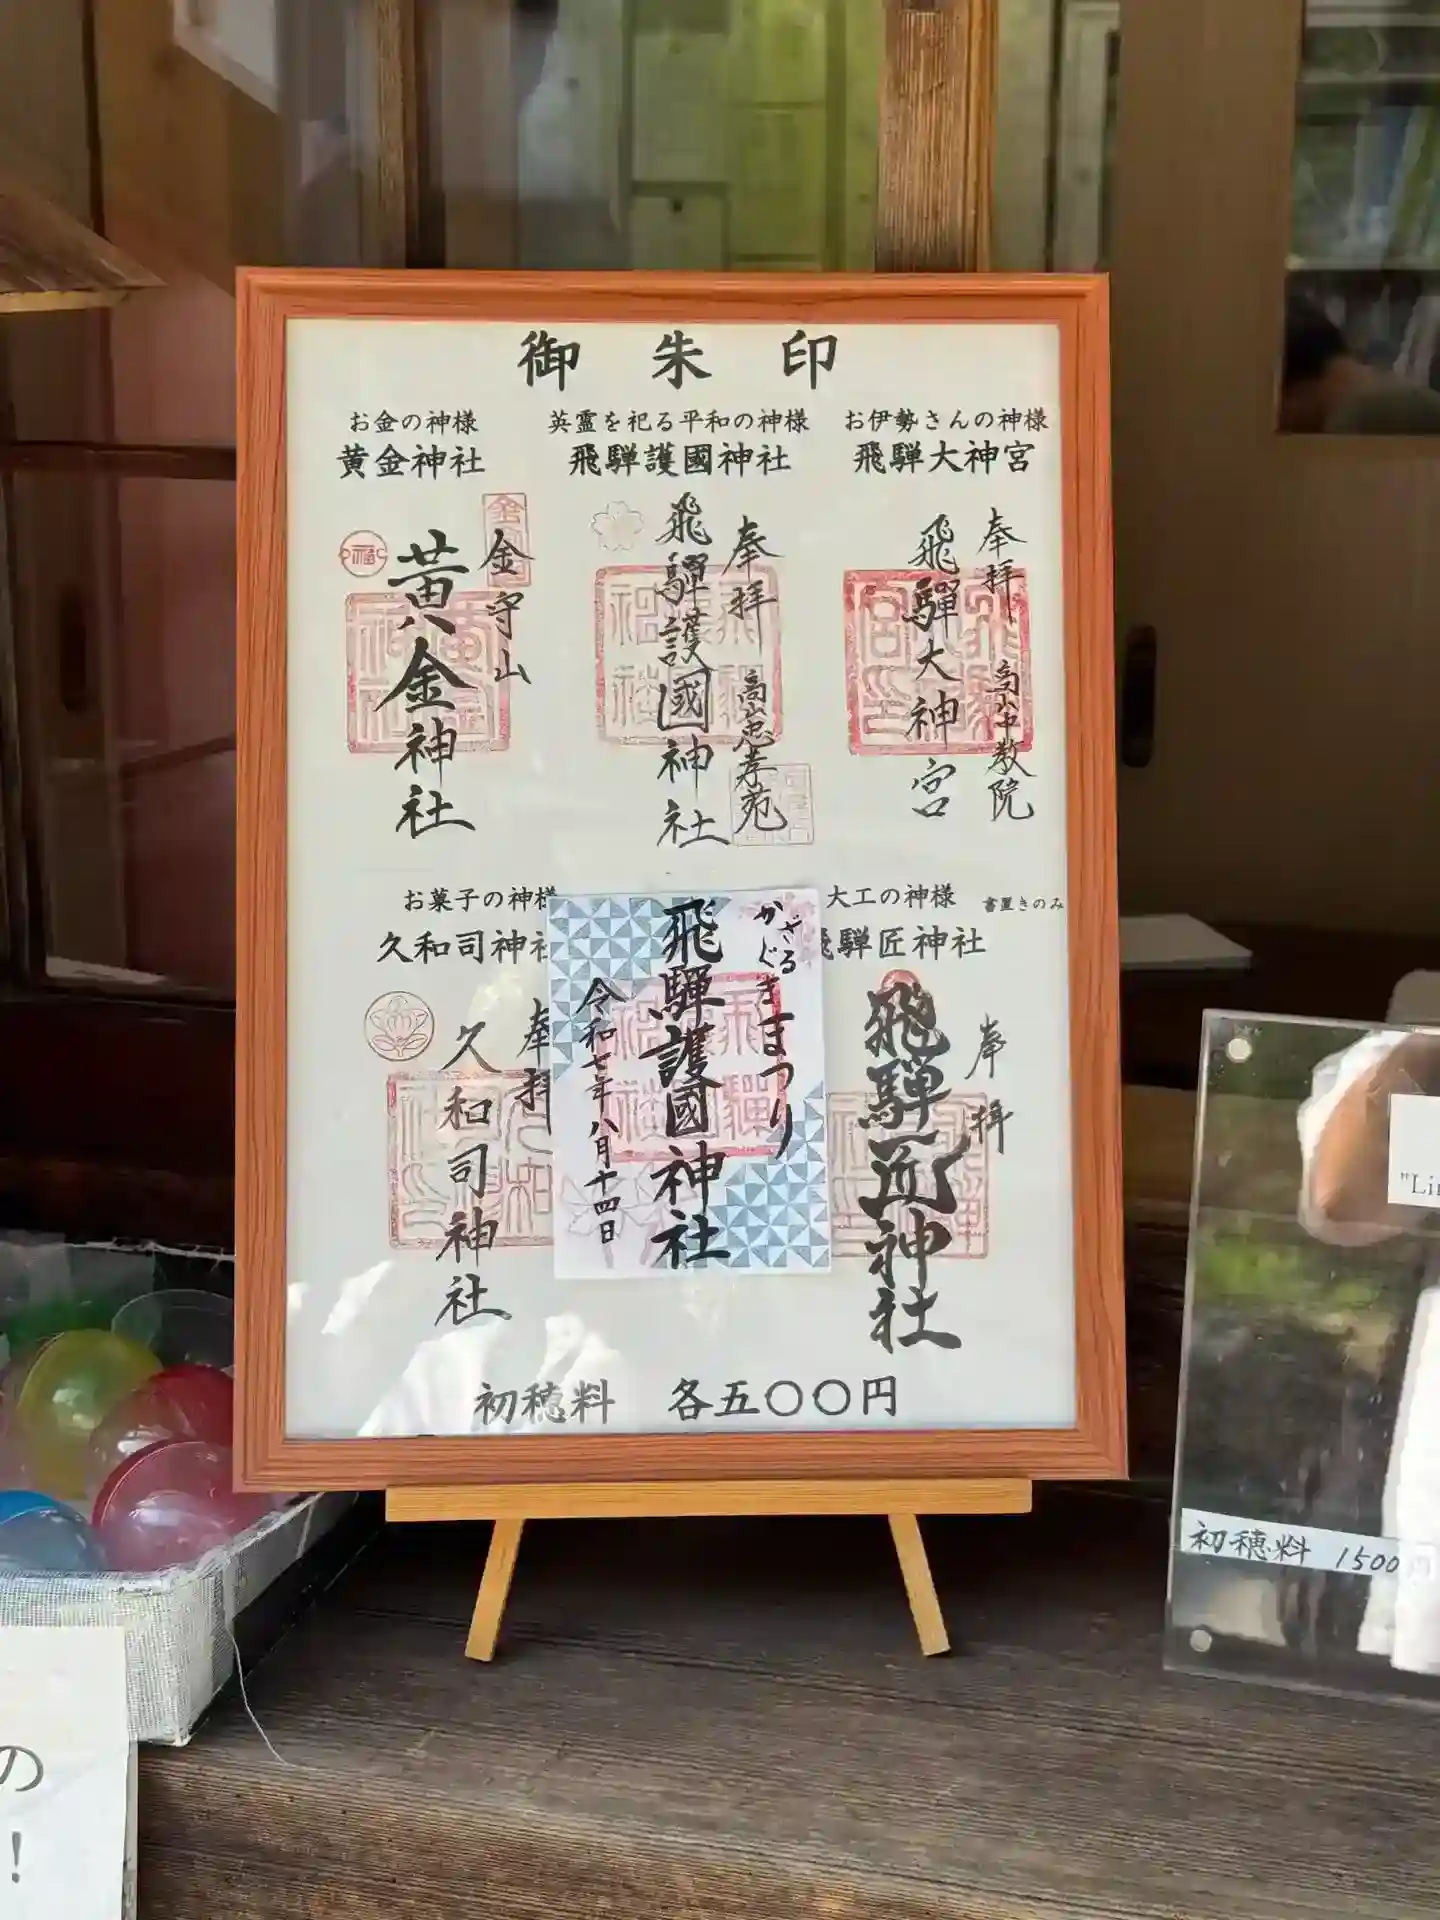 御朱印
お金の神様
黄金神社
英霊を祀る平和の神様
飛騨護國神社
お伊勢さんの神様
飛騨大神宮
金守山
黄金神社
奉拝
高山忠孝苑
飛騨護國神社
奉拝
高山中教院
飛騨大神宮
お菓子の神様
久和司神社
大工の神様
書置きのみ
飛騨匠神社
奉拝
久和司神社
かざぐるままつり
飛騨護國神社
令和七年八月十四日
奉拝
飛騨匠神社
初穂料 各五〇〇円
初穂料 1500円
"Li
の
!